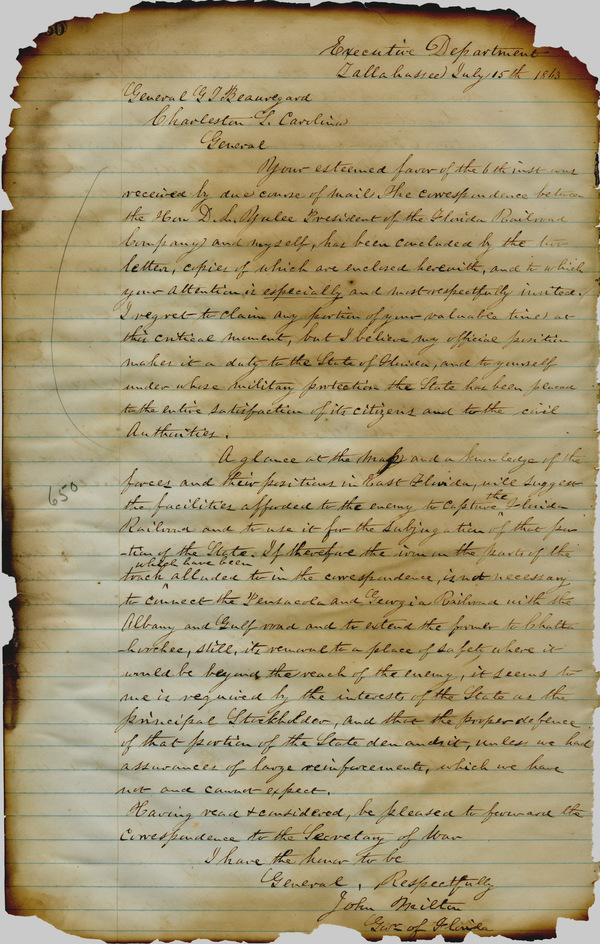 50
Executive Department
Tallahassee July 15th 1863
General G T. Beauregard
Charleston S. Carolina
General
Your esteemed favor of the 6th inst was
received by due course of mail. The correspondence between
the Hon D. L. Yulee President of the Florida Railroad
Company and myself, has been concluded by the two
letters, copies of which are enclosed herewith, and to which
your attention is especially and most respectfully invited.
I regret to claim any portion of your valuable time at
this critical moment, but I believe my official position
makes it a duty to the State of Florida, and to yourself
under whose military protection the State has been placed
to the entire satisfaction of its citizens and to the civil
Authorities.
A glance at the map and a knowledge of the
forces and their positions in East Florida, will suggest
the facilities afforded to the enemy to capture the Florida
Railroad and to use it for the subjugation of that por
-tion of the State. If therefore the iron on the parts of the
track which have been alluded to in the correspondence, is not necessary
to connect the Pensacola and Georgia Railroad with the
Albany and Gulf road and to extend the former to Chatta
-hoochee, still, its removal to a place of safety where it
would be beyond the reach of the enemy, it seems to
me is required by the interests of the State as the
principal Stockholder, and that the proper defence
of that portion of the State demands it, unless we had
assurances of large reinforcements, which we have
not and cannot expect.
Having read & considered, be pleased to forward the
correspondence to the Secretary of War
I have the honor to be
General, Respectfully
John Milton
Govr of Florida
650